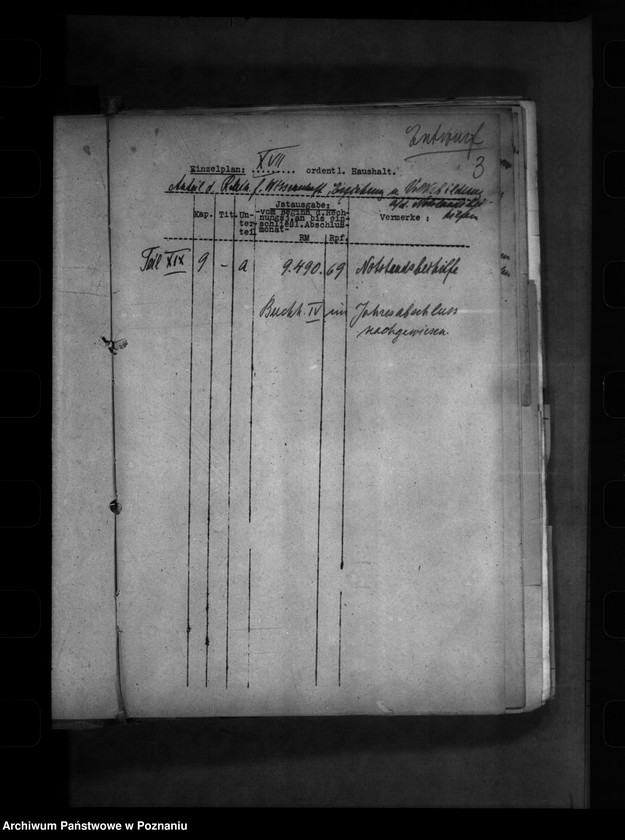 Entwurf
3
Einzelplan: XVII ordentl. Haushalt.
Anteil d. f. Wissenschaft, Erziehung u. Volksbildung
a/d.
Kap. Tit. Un-
ter-
teil
Istausgabe:
vom Beginn d. Rech-
nungsj. an bis ein-
schließl. Abschluß-
monat
RM Rpf.
Vermerke :
Teil XIX 9 - a 9.490 69 Notstandsbeihilfe
Buchh. IV im Jahresabschluss
nachgewiesen.
Archiwum Państwowe w Poznaniu